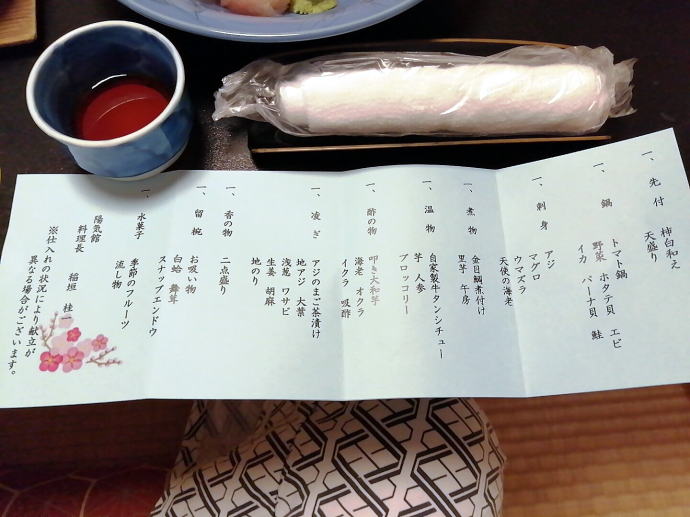 一、先付
柿白和え
天盛り
一、鍋
トマト鍋 ホタテ貝 エビ
野菜 バーナ貝 鮭
イカ
一、刺身
アジ
マグロ
ウマズラ
天使の海老
一、煮物
金目鯛煮付け
里芋 牛房
一、温物
自家製牛タンシチュー
芋 人参
ブロッコリー
一、酢の物
叩き大和芋
海老 オクラ
イクラ 吸酢
一、凌ぎ
アジのまご茶漬け
地アジ 大葉
浅葱 ワサビ
生姜 胡麻
地のり
一、香の物
二点盛り
一、留椀
お吸い物
白蛤 舞茸
スナップエンドウ
一、水菓子
季節のフルーツ
流し物
陽気館
料理長 稲垣 桂一
※仕入れの状況により献立が
異なる場合がございます。